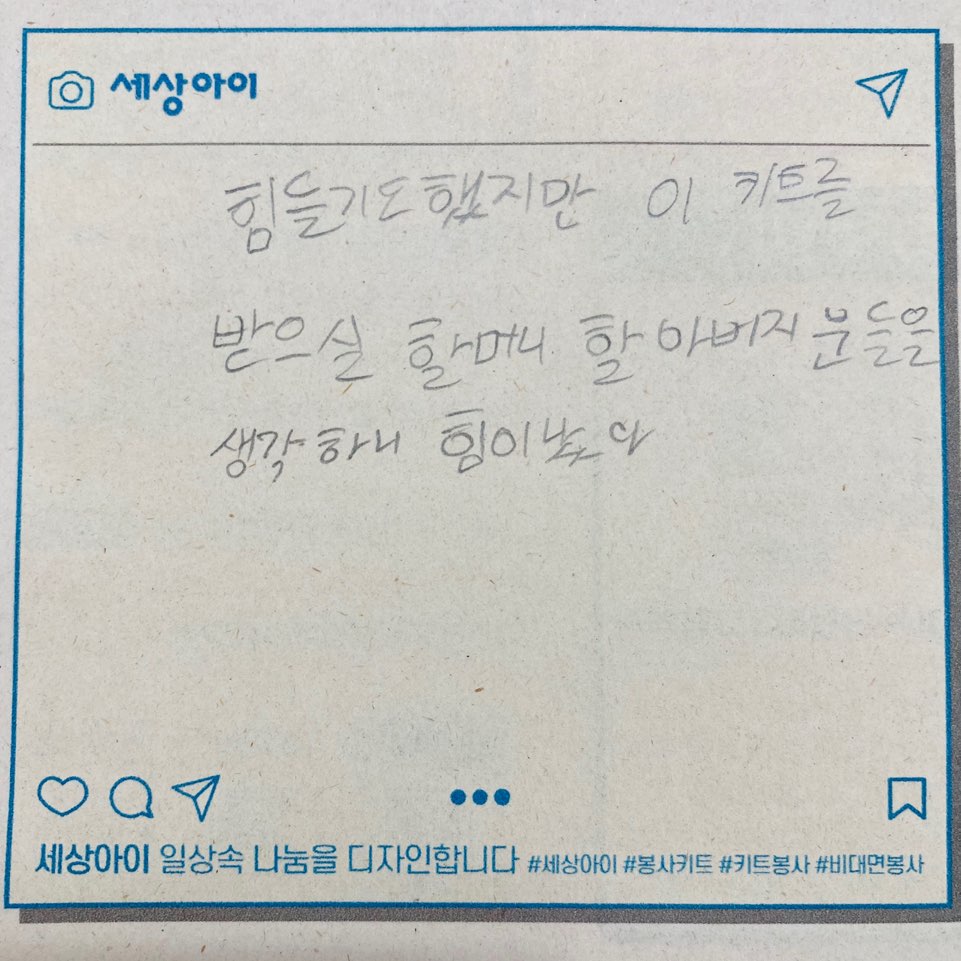 세상아이
힘들기도했지만 이 키트를
받으실 할머니 할아버지분들을
생각하니 힘이났다
세상아이 일상속 나눔을 디자인합니다 #세상아이 #봉사키트 #키트봉사 #비대면봉사